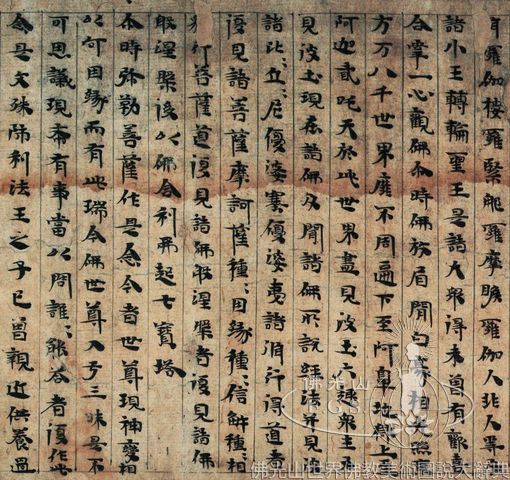 羅伽樓羅緊那羅摩睺羅伽人非人等
諸小王轉輪聖王是諸大衆得未曾有歡喜
合掌一心觀佛尒時佛放眉間白豪相光照
方万八千世界靡不周遍下至阿鼻地獄上至
阿迦貳吒天於此世界盡見彼土六趣衆生
見彼土現在諸佛及聞諸佛所說經法并見
諸比〻丘〻尼優婆塞優婆夷諸脩行得道者
復見諸菩薩摩訶薩種〻因緣種〻信解種〻相
行菩薩道復見諸佛般涅槃者復見諸佛
般涅槃後以佛舍利起七寶塔
尒時弥勒菩薩作是念今者世尊現神變相
以何因緣而有此瑞今佛世尊入于三昧是不
可思議現希有事當以問誰〻能答者復作此
念是文殊師利法王之子已曾親近供養過
佛光山
F.G.S.
佛光山世界佛教美術圖說大辭典